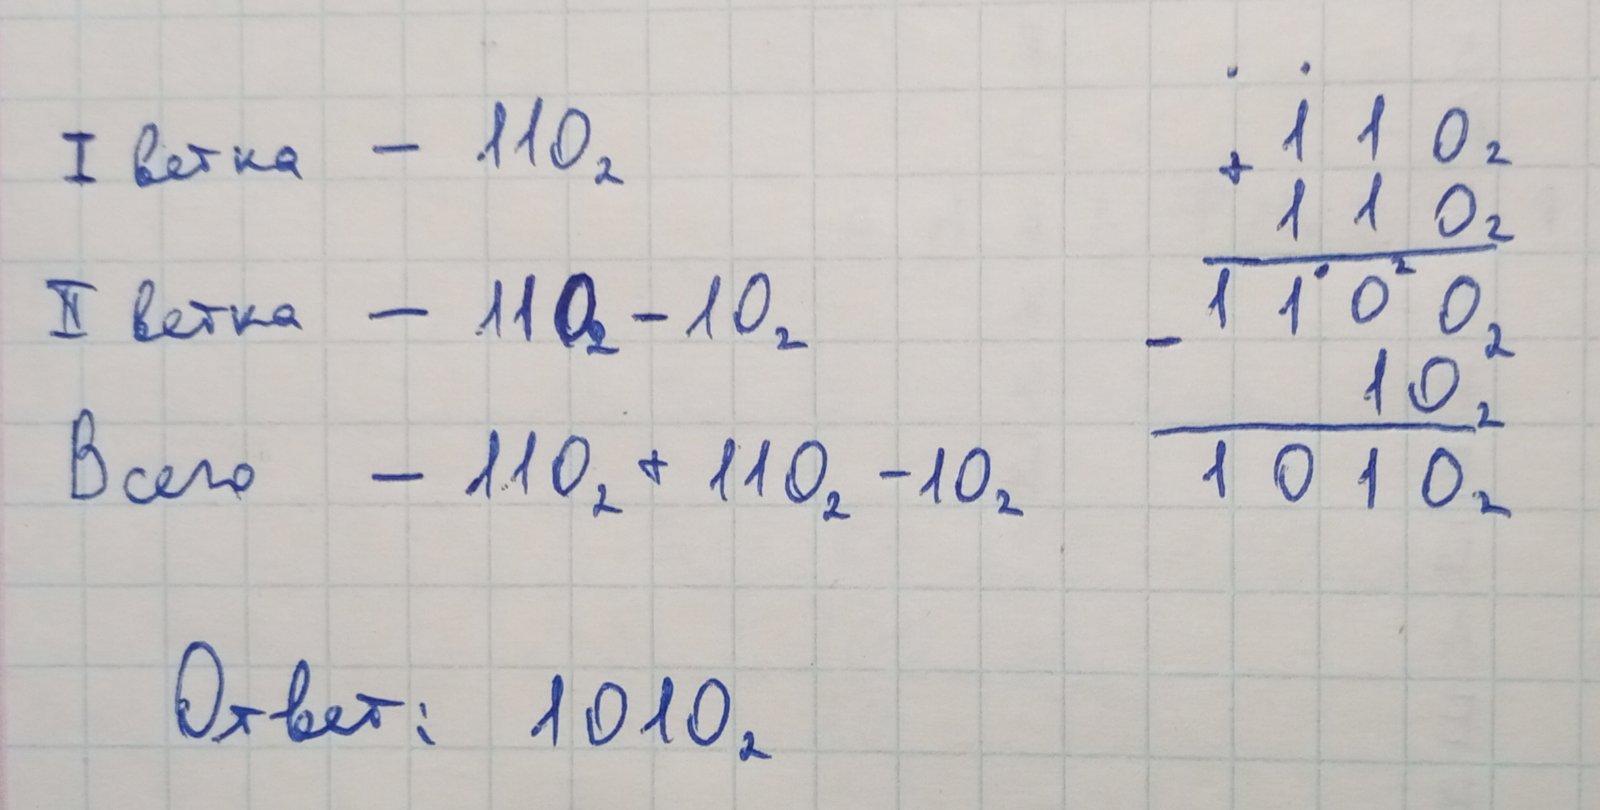 I ветка – 110₂
II ветка – 110₂ – 10₂
Всего – 110₂ + 110₂ – 10₂
+ 110₂
110₂
1100₂
– 10₂
1010₂
Ответ: 1010₂